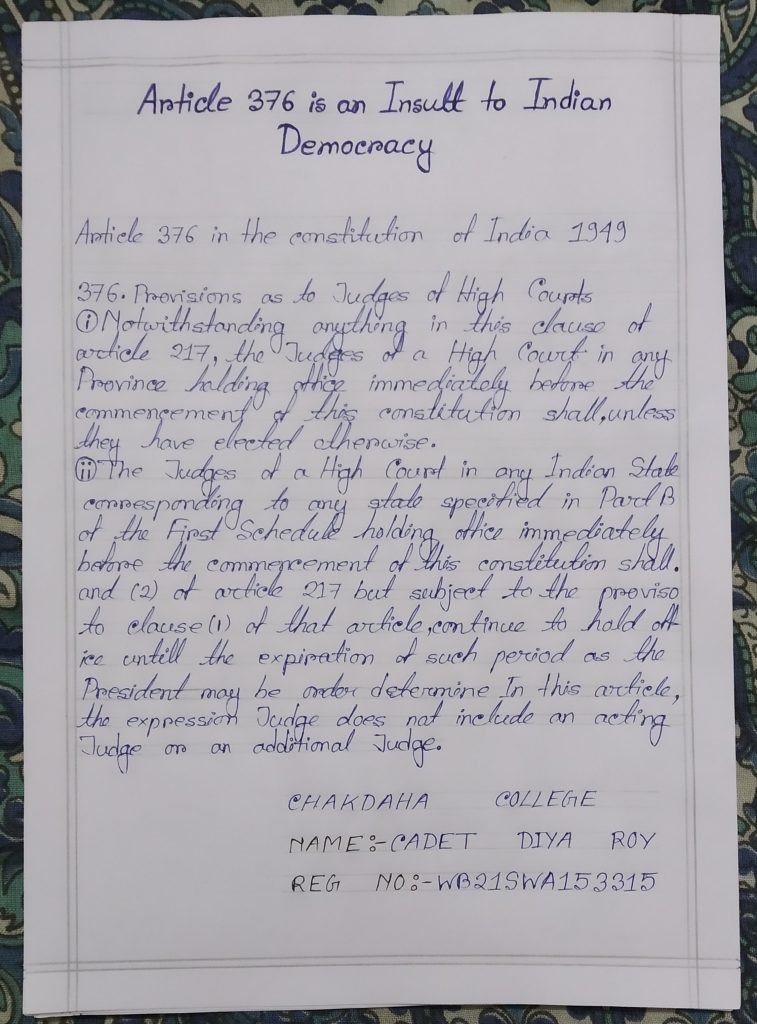 Article 376 is an Insult to Indian
Democracy
Article 376 in the constitution of India 1949
376. Provisions as to Judges of High Courts
(i) Notwithstanding anything in this clause of
article 217, the Judges of a High Court in any
Province holding office immediately before the
commencement of this constitution shall, unless
they have elected otherwise.
(ii) The Judges of a High Court in any Indian State
corresponding to any state specified in Part B
of the First Schedule holding office immediately
before the commencement of this constitution shall.
and (2) of article 217 but subject to the proviso
to clause (1) of that article, continue to hold off
ice untill the expiration of such period as the
President may be order determine In this article,
the expression Judge does not include an acting
Judge or an additional Judge.
CHAKDAHA COLLEGE
NAME:-CADET DIYA ROY
REG NO:-WB21SWA153315